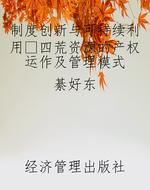 制度创新与可持续利
用□四荒资源的产权
运作及管理模式
綦好东
经济管理出版社